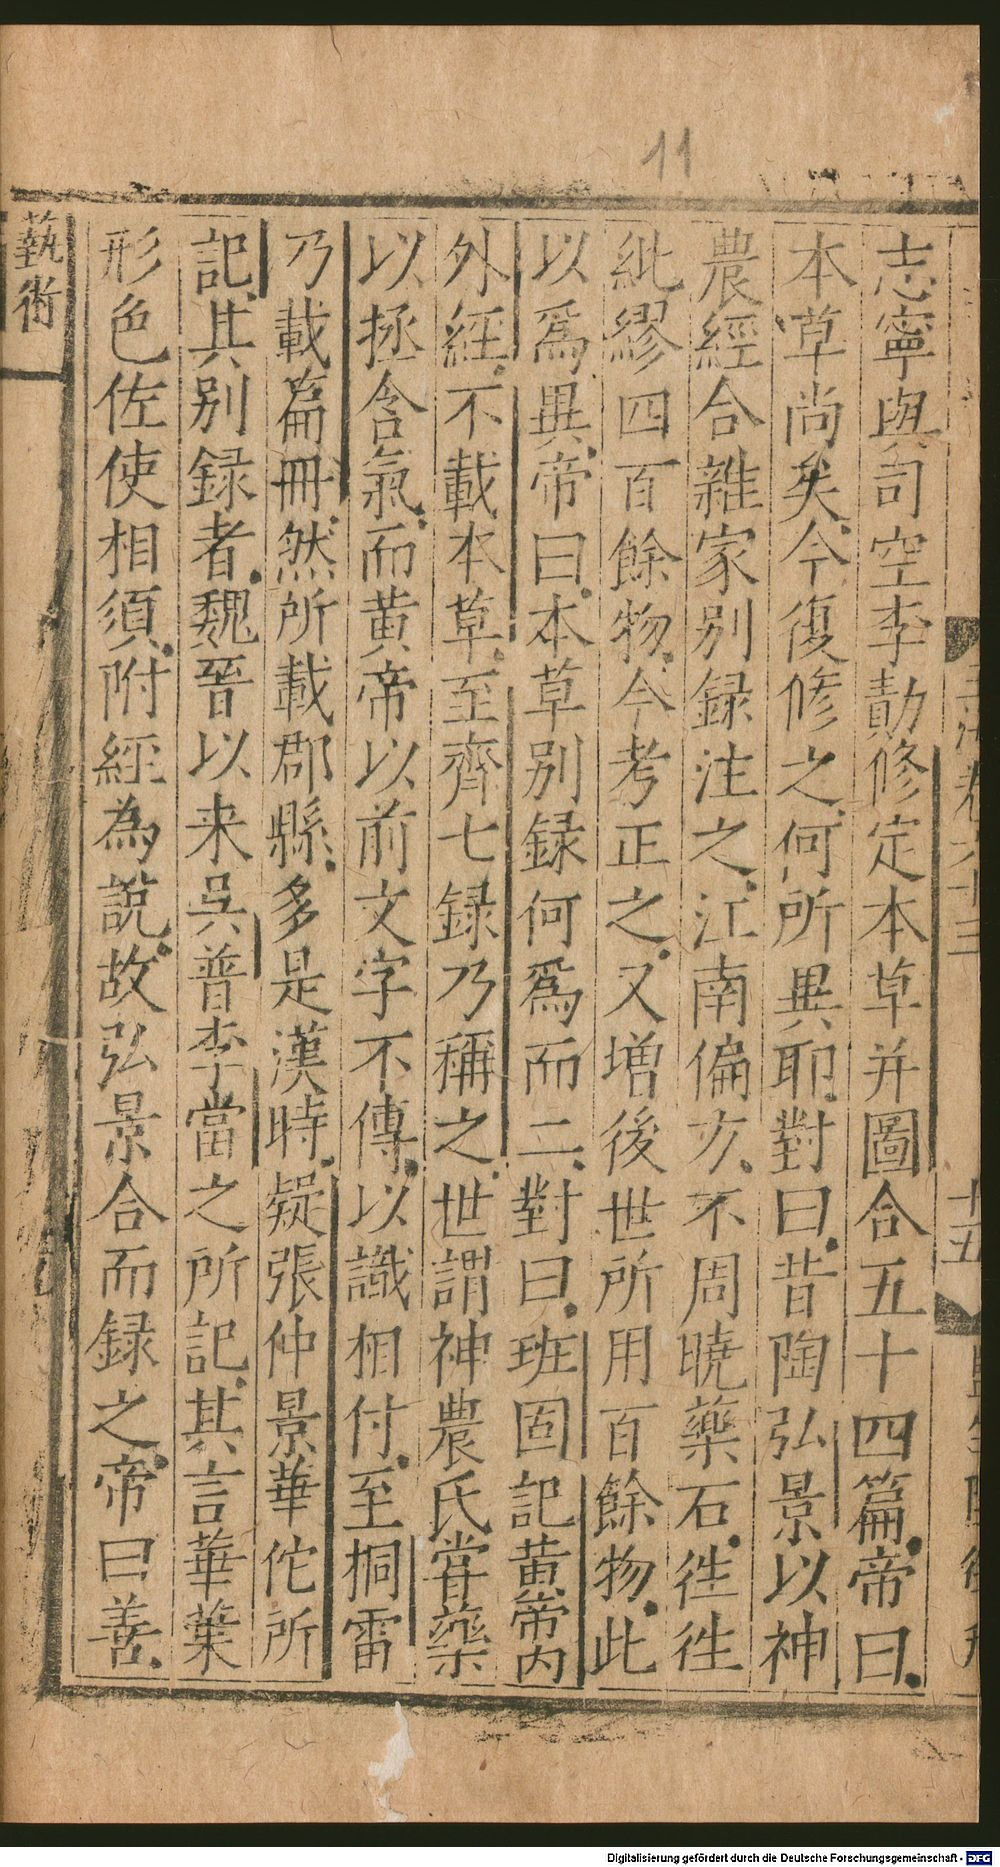 11
志寧與司空李勣修定本草并圖合五十四篇帝曰
本草尚矣今復修之何所異耶對曰昔陶弘景以神
農經合雜家別録注之江南偏方不周曉藥石往往
紕繆四百餘物今考正之又增後世所用百餘物此
以爲異帝曰本草別録何爲而二對曰班固記黃帝內
外經不載本草至齊七録乃稱之世謂神農氏甞藥
以拯含氣而黃帝以前文字不傳以識相付至桐雷
乃載篇冊然所載郡縣多是漢時疑張仲景華佗所
記其別録者魏晉以来吳普李當之所記其言華葉
形色佐使相須附經為說故弘景合而録之帝曰善
藝術
十五
Digitalisierung gefördert durch die Deutsche Forschungsgemeinschaft - DFG